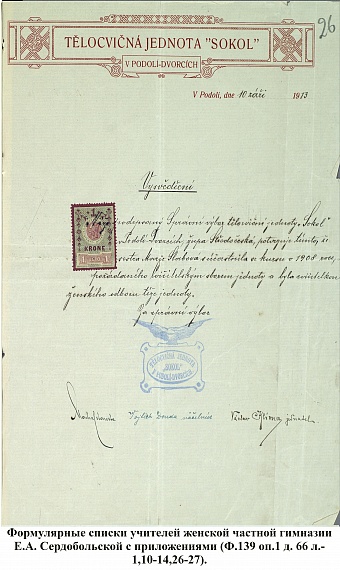 26
TĚLOCVIČNÁ JEDNOTA "SOKOL"
V PODOLI-DVORCÍCH
V Podolí, dne 10 září 1913
Vysvědčení
podepsaný Správní výbor tělocvičné jednoty „Sokol"
Podolí Dvorcích, župa Středočeská, potvrzuje tímto, že
sestra Marie súčastnila se kursu v 1908 roce,
pořádaného cvičitelským sborem jednoty a byla cvičitelkou
ženského odboru téže jednoty.
Za správní výbor
KRONE
TĚLOCVIČNÁ JEDNOTA
"SOKOL"
V PODOLI-DVORCÍCH
Vojtěch náčelník
Václav jednatel
Формулярные списки учителей женской частной гимназии
Е.А. Сердобольской с приложениями (Ф.139 оп.1 д. 66 л.-
1,10-14,26-27).